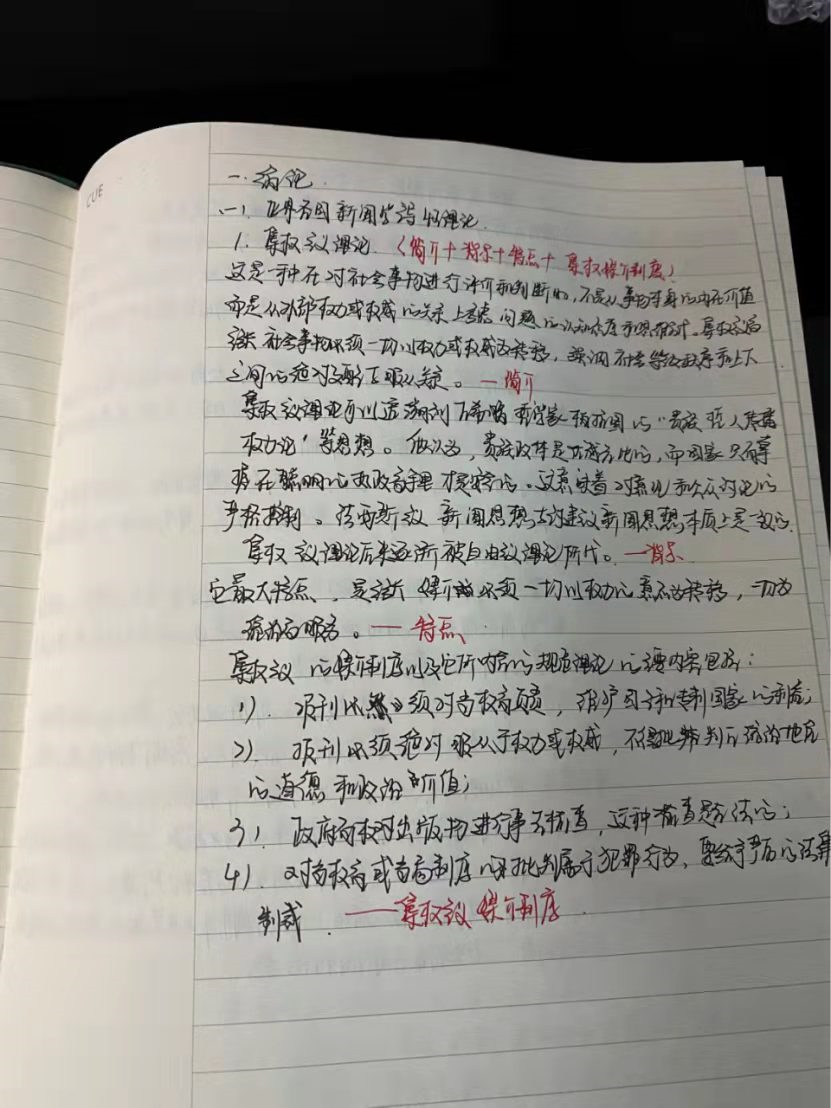 CUE
一. 绪论.
一. 世界各国新闻学诸如理论.
1. 集权主义理论. (简介+背景+特点+集权媒介制度)
这是一种在对社会事物进行评价和判断时,不是从事物本身的内在价值
而是从外部权力或权威的关系上考虑问题的
社会事物必须一切以权力或权威为转移,强调社会等级秩序和上下
之间的绝对支配与服从关系。—简介
集权主义理论可以追溯到古希腊哲学家柏拉图的“贵族哲人
权力论”等思想。他认为,贵族政体是 的,而国家只有掌
握在聪明的 手里才 的。这意味着对 和公众讨论的
严格控制。法西斯主义新闻思想与封建主义新闻思想本质上是一致的.
集权主义理论后来逐渐被自由主义理论所代。—背景
它最大特点,是 媒介必须一切以权力的意志为转移,一切为
统治者服务。—特点
集权主义的媒介制度以及它所内含的规范理论的主要内容包括:
1). 报刊必须对当权者负责,维护国王和专制国家的利益;
2). 报刊必须绝对服从于权力或权威,不得批判占统治地位
的道德和政治价值;
3). 政府有权对出版物进行事先检查,这种检查是合法的;
4). 对当权者或当局制度的批判属于犯罪行为,要给予严厉的法律
制裁. ——集权主义媒介制度.